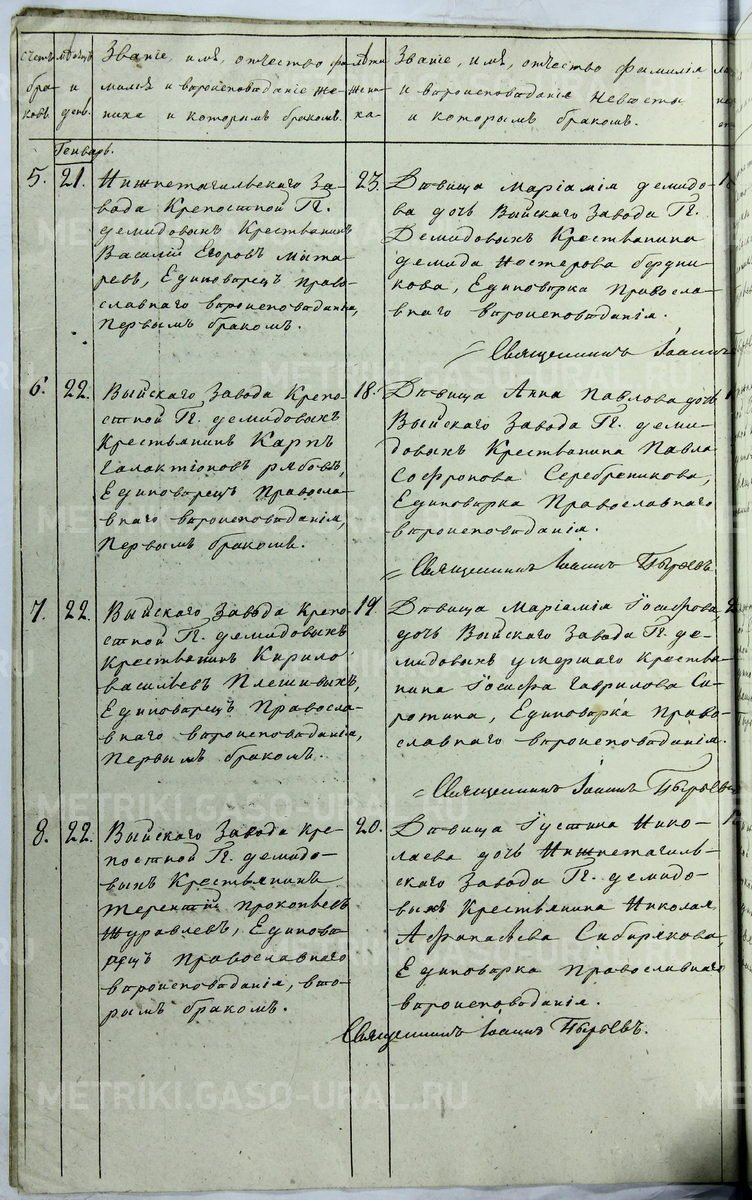 счетъ
бра-
ковъ.
мѣсяцъ
и
день.
Званіе, имя, отчество фа-
милія и вѣроисповѣданіе же-
ниха и которымъ бракомъ.
лѣта
жени-
ха.
Званіе, имя, отчество фамилія
и вѣроисповѣданія невѣсты
и которымъ бракомъ.
Генварь.
5. 21.
Нижнетагильскаго За-
вода Крепостной Гг.
демидовыхъ Крестьянинъ
Василій Егоровъ
Единоверецъ право-
славнаго вѣроисповѣданія,
Первымъ бракомъ.
23.
Дѣвица Маріамія демидо-
ва дочь Выйскаго Завода Гг.
Демидовыхъ Крестьянина
демида Нестерова бердни-
кова, Единоверка Правосла-
внаго вѣроисповѣданія.
Священникъ Іоаннъ
6. 22.
Выйскаго Завода Крепо-
стной Гг. демидовыхъ
Крестьянинъ Карпъ
Галактіоновъ рябовъ,
Единоверецъ Правосла-
внаго вѣроисповѣданія,
Первымъ бракомъ.
18.
Дѣвица Анна Павлова дочь
Выйскаго Завода Гг. деми-
довыхъ Крестьянина Павла
Софронова Серебреникова,
Единоверка Православнаго
вѣроисповѣданія.
Священникъ Іоаннъ Пырьевъ
7. 22.
Выйскаго Завода Крепо-
стной Гг. демидовыхъ
Крестьянинъ Кирило
васильевъ Плешивыхъ,
Единоверецъ Правосла-
внаго вѣроисповѣданія,
Первымъ бракомъ.
19.
Дѣвица Маріамія Іосифова,
дочь Выйскаго Завода Гг. де-
мидовыхъ умершаго крестья-
нина Іосифа Гаврилова Си-
ротина, Единоверка Право-
славнаго вѣроисповѣданія.
Священникъ Іоаннъ Пырьевъ
8. 22.
Выйскаго Завода Кре-
постной Гг. демидо-
выхъ Крестьянинъ
терентій прокопьевъ
Журавлевъ, Единове-
рецъ православнаго
вѣроисповѣданія, вто-
рымъ бракомъ.
20.
Дѣвица Іустина Нико-
лаева дочь Нижнетагиль-
скаго Завода Гг. демидо-
выхъ Крестьянина Николая
Афанасьева Сибирякова,
Единоверка православнаго
вѣроисповѣданія.
Священникъ Іоаннъ Пырьевъ.
METRIKI.GASO-URAL.RU